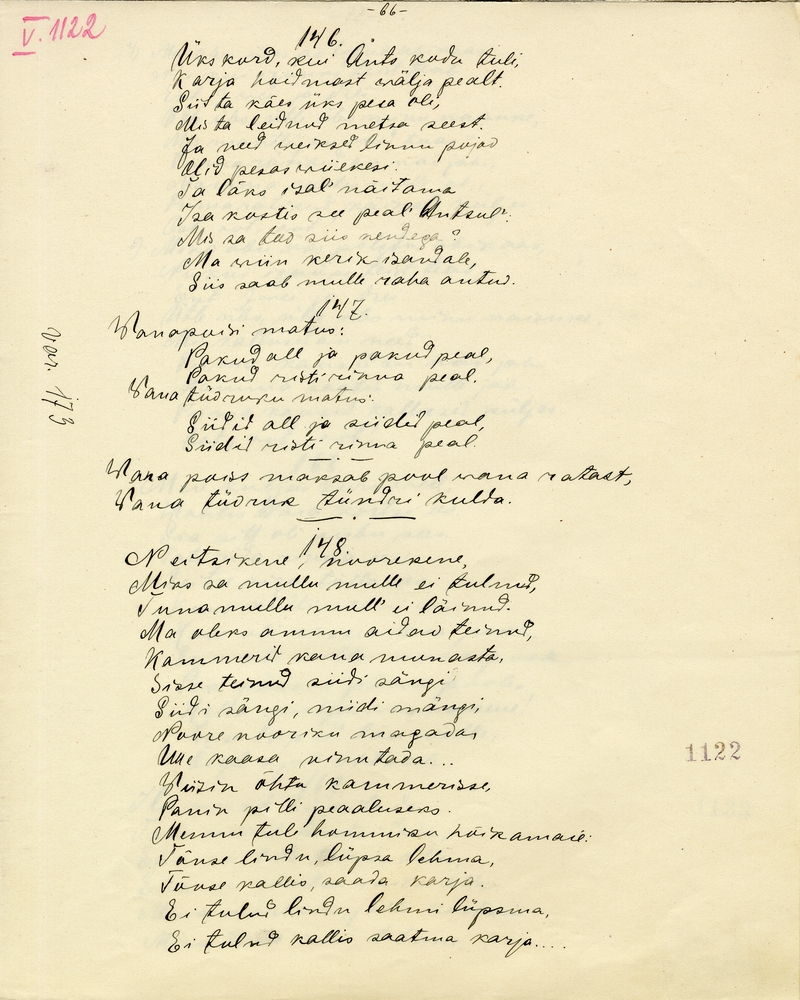 - 66 -
V. 1122
146.
Ükskord, kui Ants kodu tuli,
Karja hoidmast wälja pealt.
Siis ta käes üks pesa oli,
Mis ta leidnud metsa seest.
Ja need weiksed linnu pojad
Olid pesas wiiekesi.
Ta läks isal' näitama
Isa kostis see peal' Antsul':
Mis sa teed siis nendega?
Ma wiin kerik isandale,
Siis saab mulle raha antud.
147.
Wanapoisi matus:
Pakud all ja pakud peal,
Pakud risti rinna peal.
Wana tüdruku matus:
Siidid all ja siidid peal,
Siidid risti rinna peal.
var. 173
Wana poiss maksab pool wana ratast,
Wana tüdruk tündri kulda.
148.
Neitsikene, noorekene,
Miks sa mullu mulle ei tulnud,
Tunamullu mull' ei läinud.
Ma oleks ammu aidad teinud,
Kammerid kana munasta,
Sisse teinud siidi sängi
Siidi sängi, niidi mängi,
Noore nooriku magada,
Uue kaasa uinutada...
Wiisin õhtu kammerisse,
Panin pilli peaaluseks.
Memm tuli hommiku hõikamaie:
Tõuse lindu, lüpsa lehma,
Tõuse kallis, saada karja.
Ei tulnd lindu lehmi lüpsma,
Ei tulnd kallis saatma karja....
1122